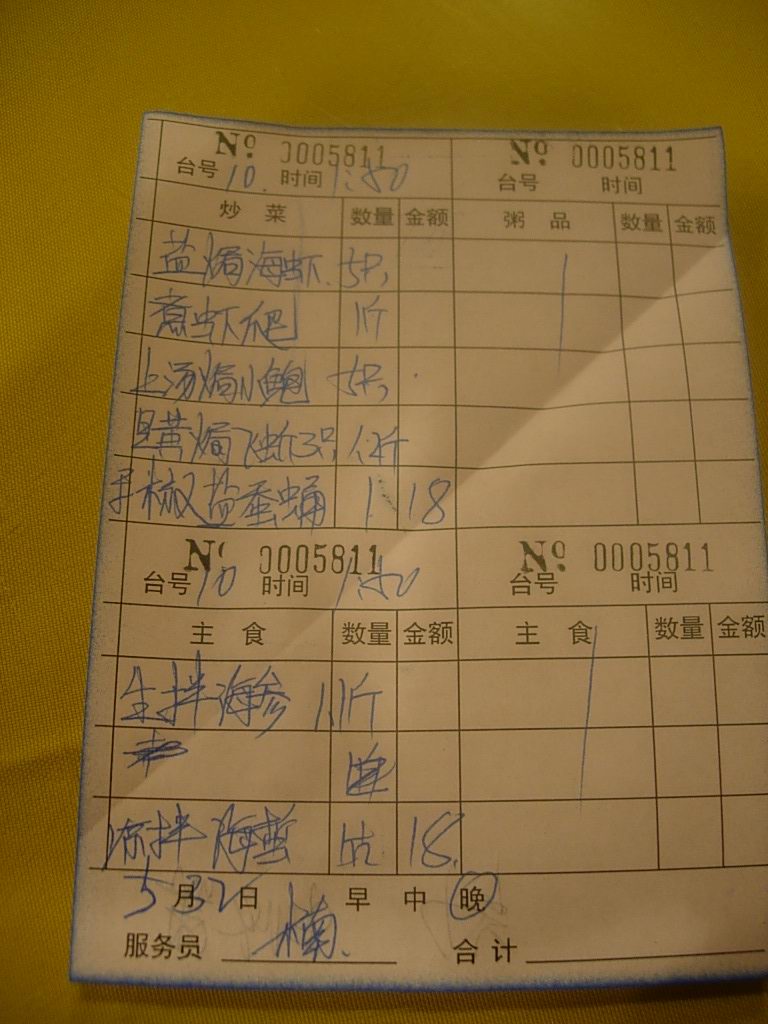 № 0005811 № 0005811
台号 10. 时间 1:50 台号 时间
炒菜 数量 金额 粥品 数量 金额
盐焗海虾. 5只,
煮虾爬 1斤
上汤焗小鲍 5只,
焗飞蚧3只
椒盐蚕蛹 1 18
№ 0005811 № 0005811
台号 10 时间 1:50 台号 时间
主食 数量 金额 主食 数量 金额
生拌海参 1.1斤
凉拌海蜇 18.
5月 日 早 中 晚
服务员 楠. 合计